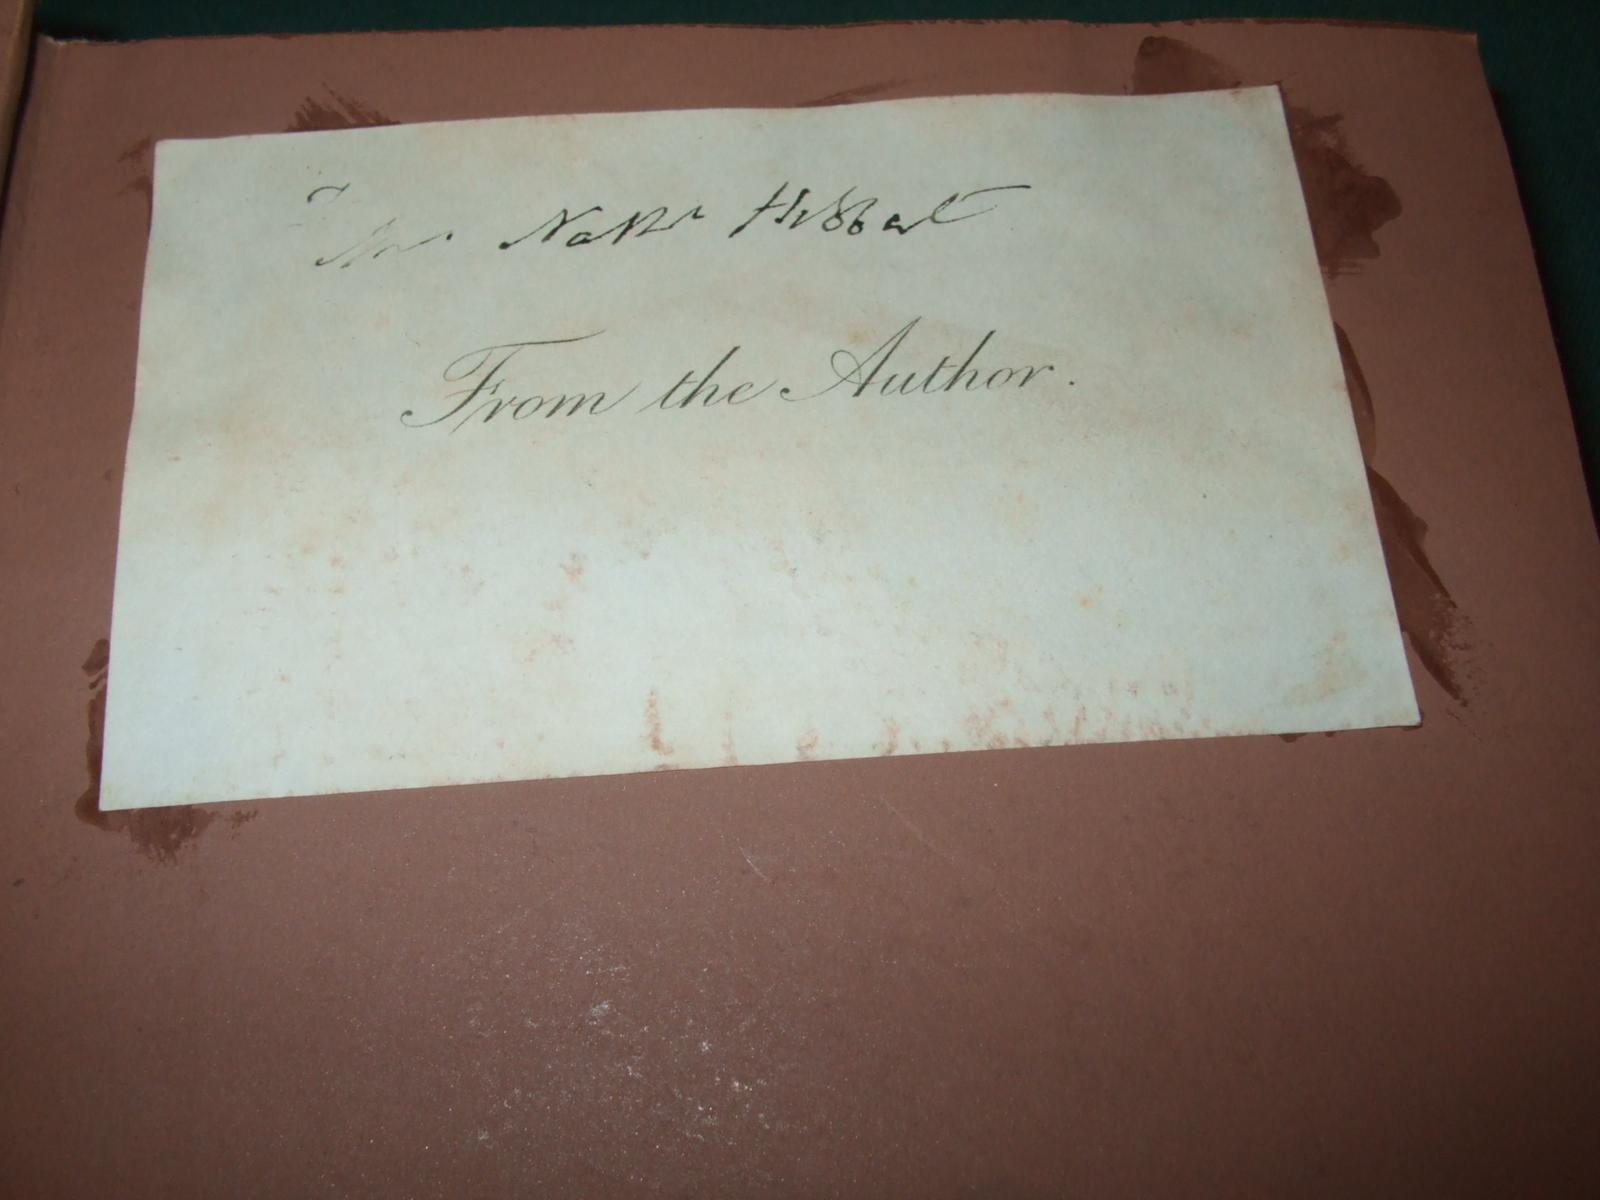 Nathl Hibbert
From the Author.